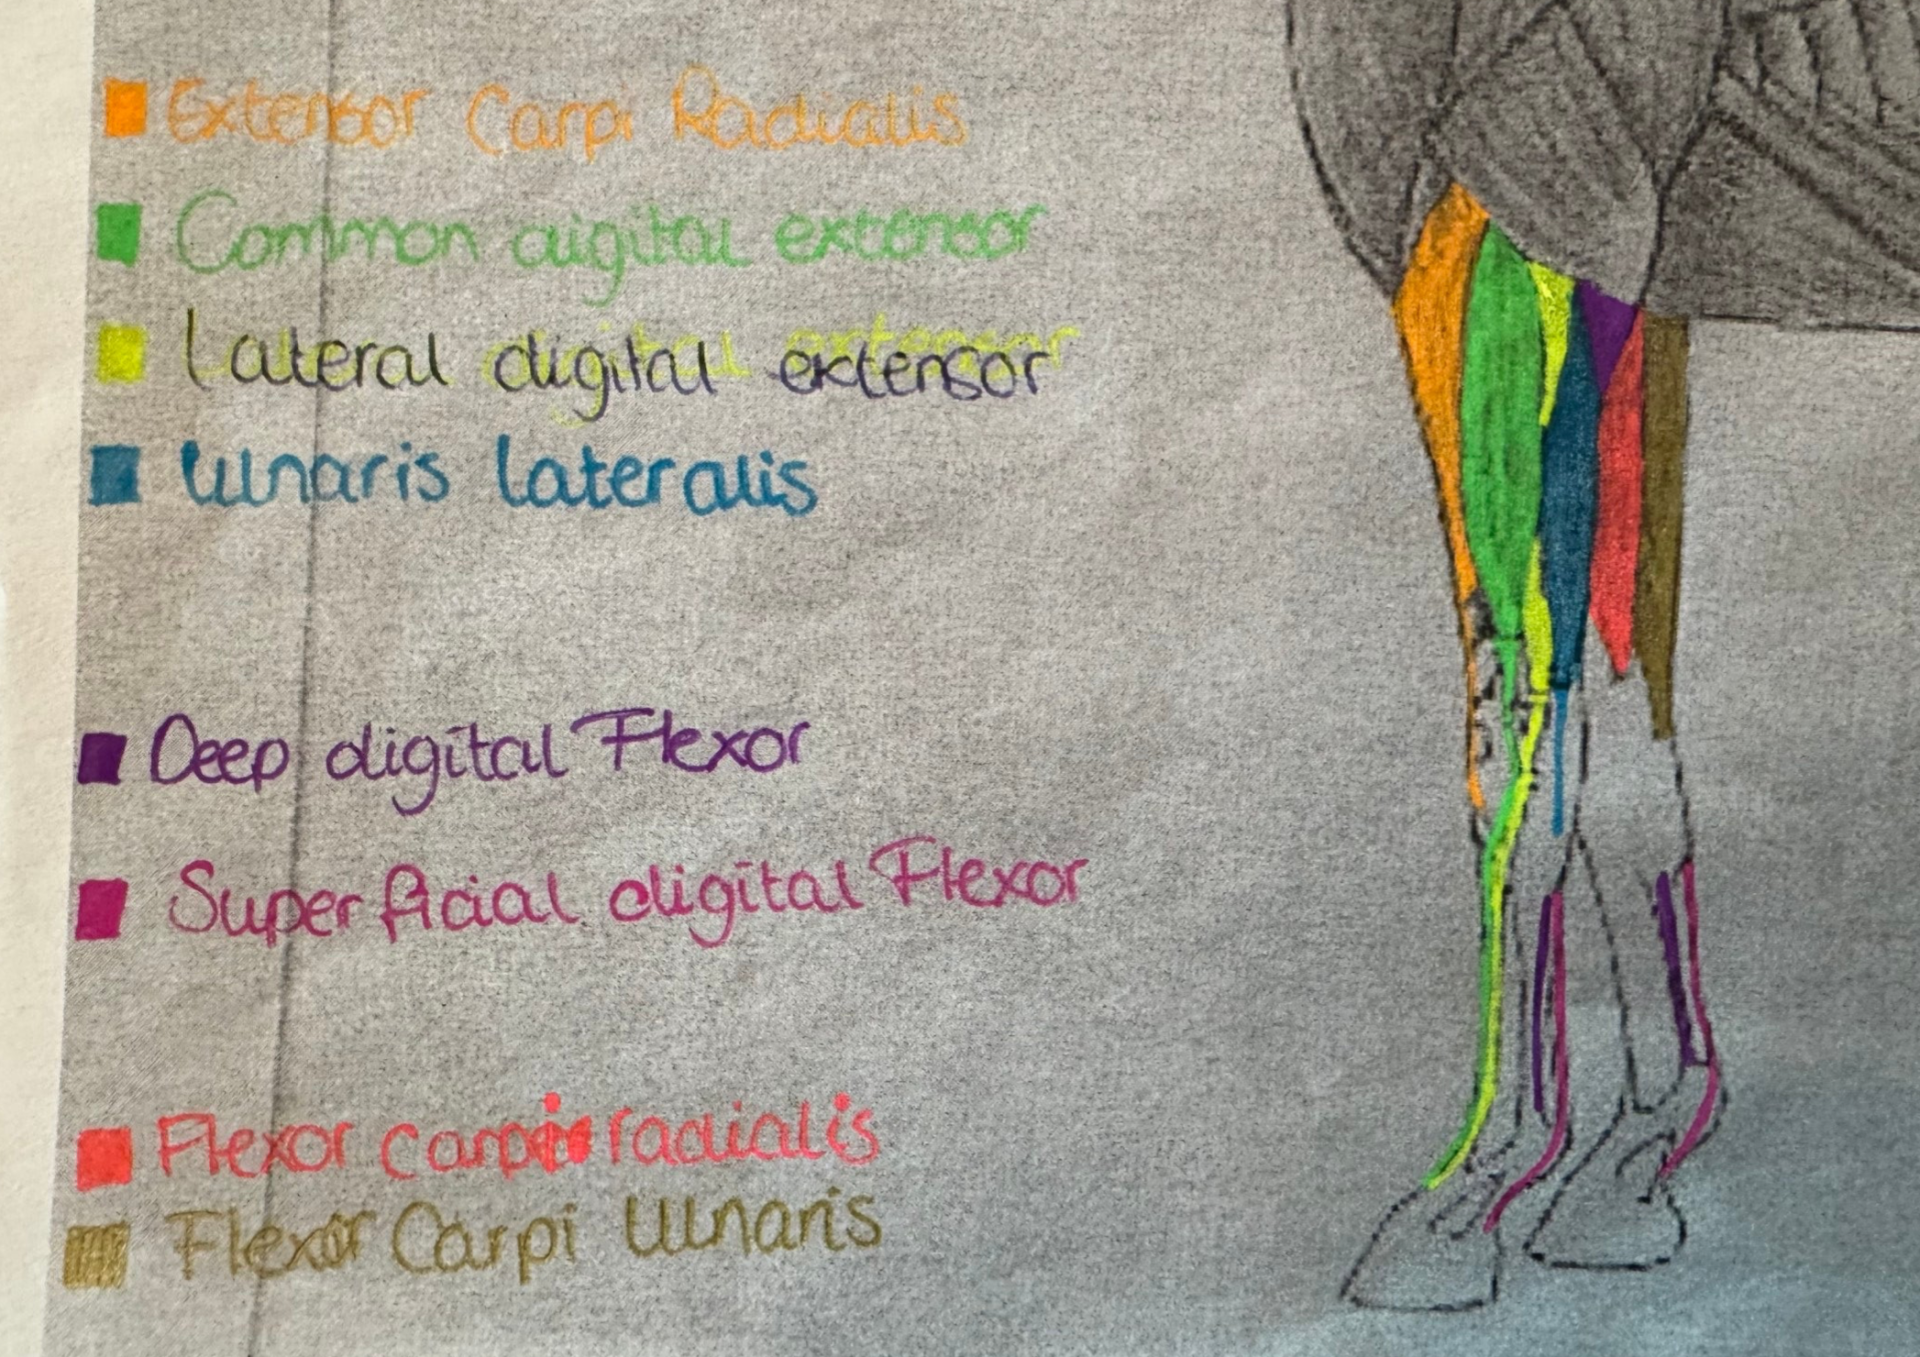 Extensor Carpi Radialis
Common digital extensor
Lateral digital extensor
Ulnaris lateralis
Deep digital Flexor
Superficial digital Flexor
Flexor carpi radialis
Flexor Carpi Ulnaris